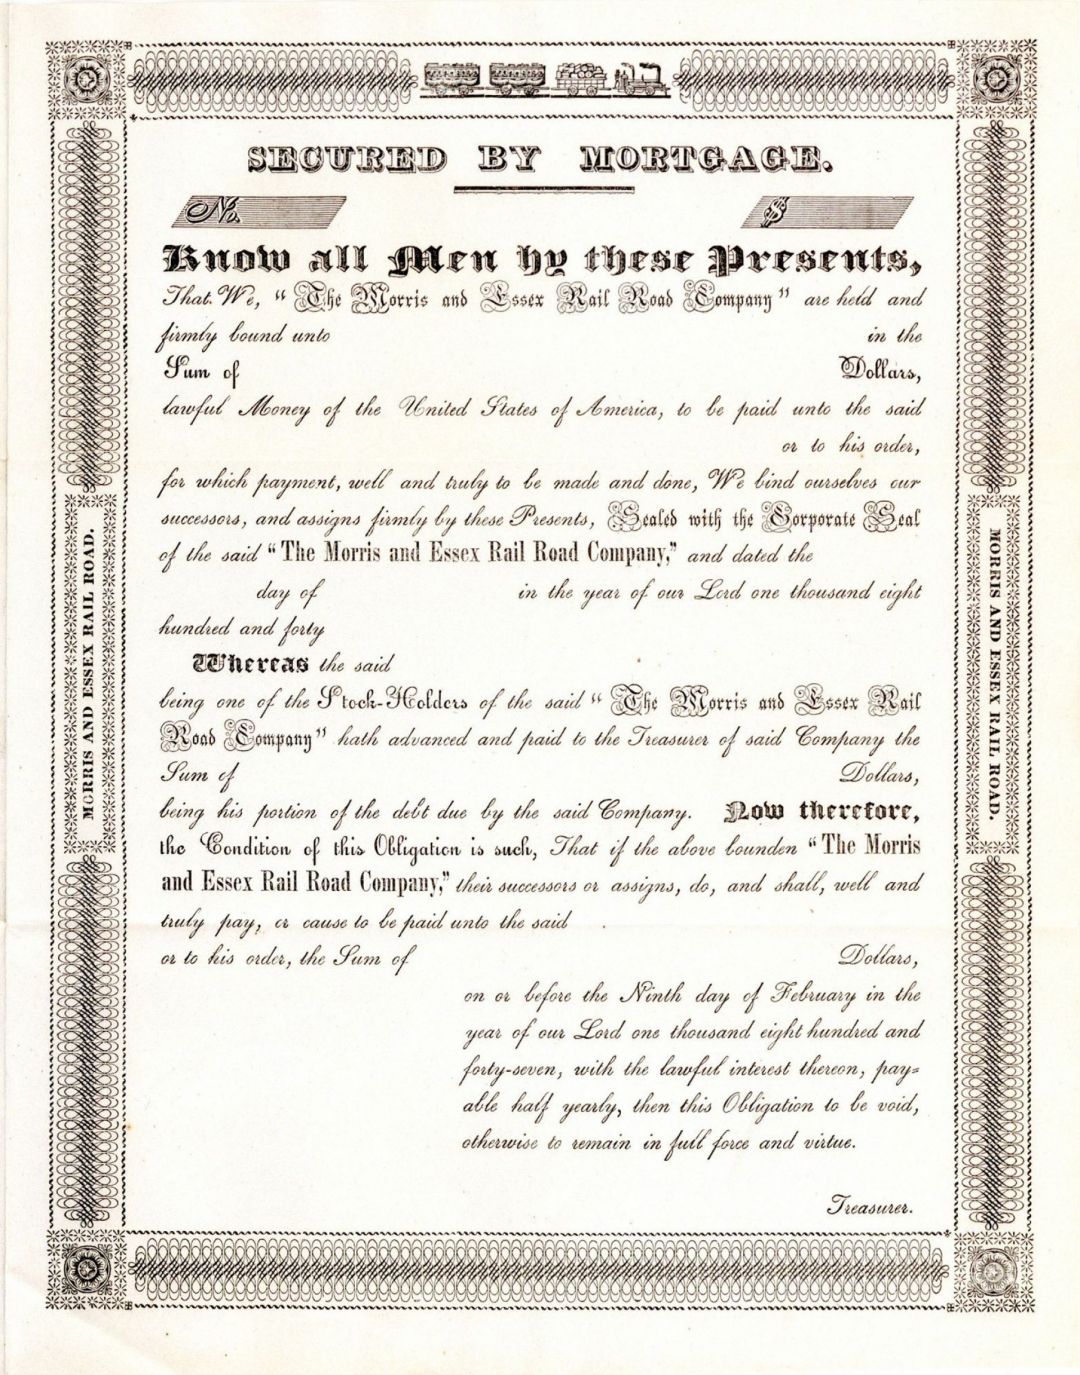 SECURED BY MORTGAGE.
No. $
Know all Men by these Presents,
That We, "The Morris and Essex Rail Road Company" are held and
firmly bound unto in the
Sum of Dollars,
lawful Money of the United States of America, to be paid unto the said
or to his order,
for which payment, well and truly to be made and done, We bind ourselves our
successors, and assigns firmly by these Presents, Sealed with the Corporate Seal
of the said "The Morris and Essex Rail Road Company," and dated the
day of in the year of our Lord one thousand eight
hundred and forty
Whereas the said
being one of the Stock-Holders of the said "The Morris and Essex Rail
Road Company" hath advanced and paid to the Treasurer of said Company the
Sum of Dollars,
being his portion of the debt due by the said Company. Now therefore,
the Condition of this Obligation is such, That if the above bounden "The Morris
and Essex Rail Road Company," their successors or assigns, do, and shall, well and
truly pay, or cause to be paid unto the said
or to his order, the Sum of Dollars,
on or before the Ninth day of February in the
year of our Lord one thousand eight hundred and
forty-seven, with the lawful interest thereon, pay=
able half yearly, then this Obligation to be void,
otherwise to remain in full force and virtue.
Treasurer.
MORRIS AND ESSEX RAIL ROAD.
MORRIS AND ESSEX RAIL ROAD.